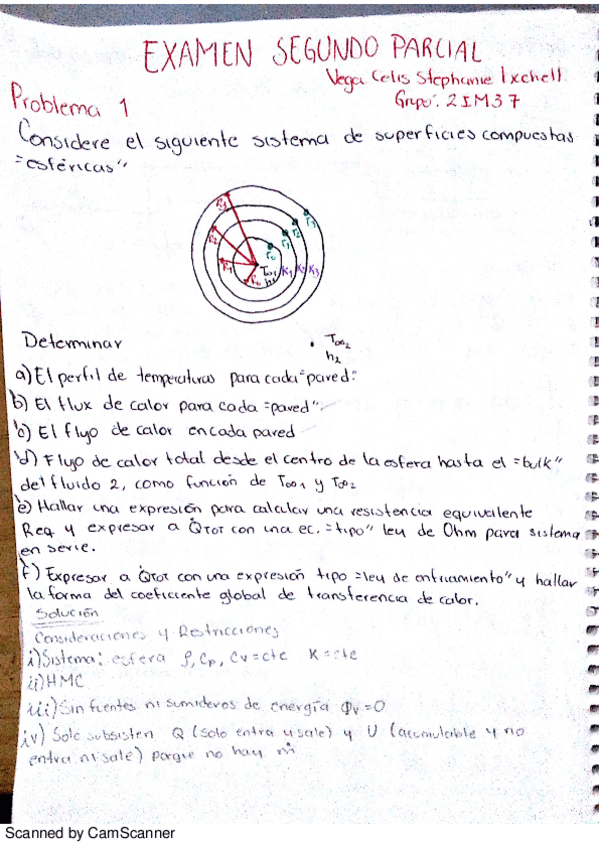 EXAMEN SEGUNDO PARCIAL
Vega Celis Stephanie Ixchell
Grupo: 2IM37
Problema 1
Considere el siguiente sistema de superficies compuestas
"esféricas"
R3
R2
R1
R0
r3
r2
r1
r0
T∞1
h1
K1 K2 K3
Determinar
T∞2
h2
a) El perfil de temperaturas para cada "pared".
b) El flux de calor para cada "pared".
c) El flujo de calor en cada pared
d) Flujo de calor total desde el centro de la esfera hasta el "bulk"
del fluido 2, como función de T∞1 y T∞2
e) Hallar una expresión para calcular una resistencia equivalente
Req y expresar a Q̇TOT con una ec. "tipo" ley de Ohm para sistema
en serie.
f) Expresar a Q̇TOT con una expresión tipo "ley de enfriamiento" y hallar
la forma del coeficiente global de transferencia de calor.
Solución
Consideraciones y Restricciones
i) Sistema: esfera ρ, Cp, Cv = cte K = cte
ii) HMC
iii) Sin fuentes ni sumideros de energía Φv = 0
iv) Solo subsisten Q (solo entra y sale) y U (acumulable y no
entra ni sale) porque no hay ṁ
Scanned by CamScanner